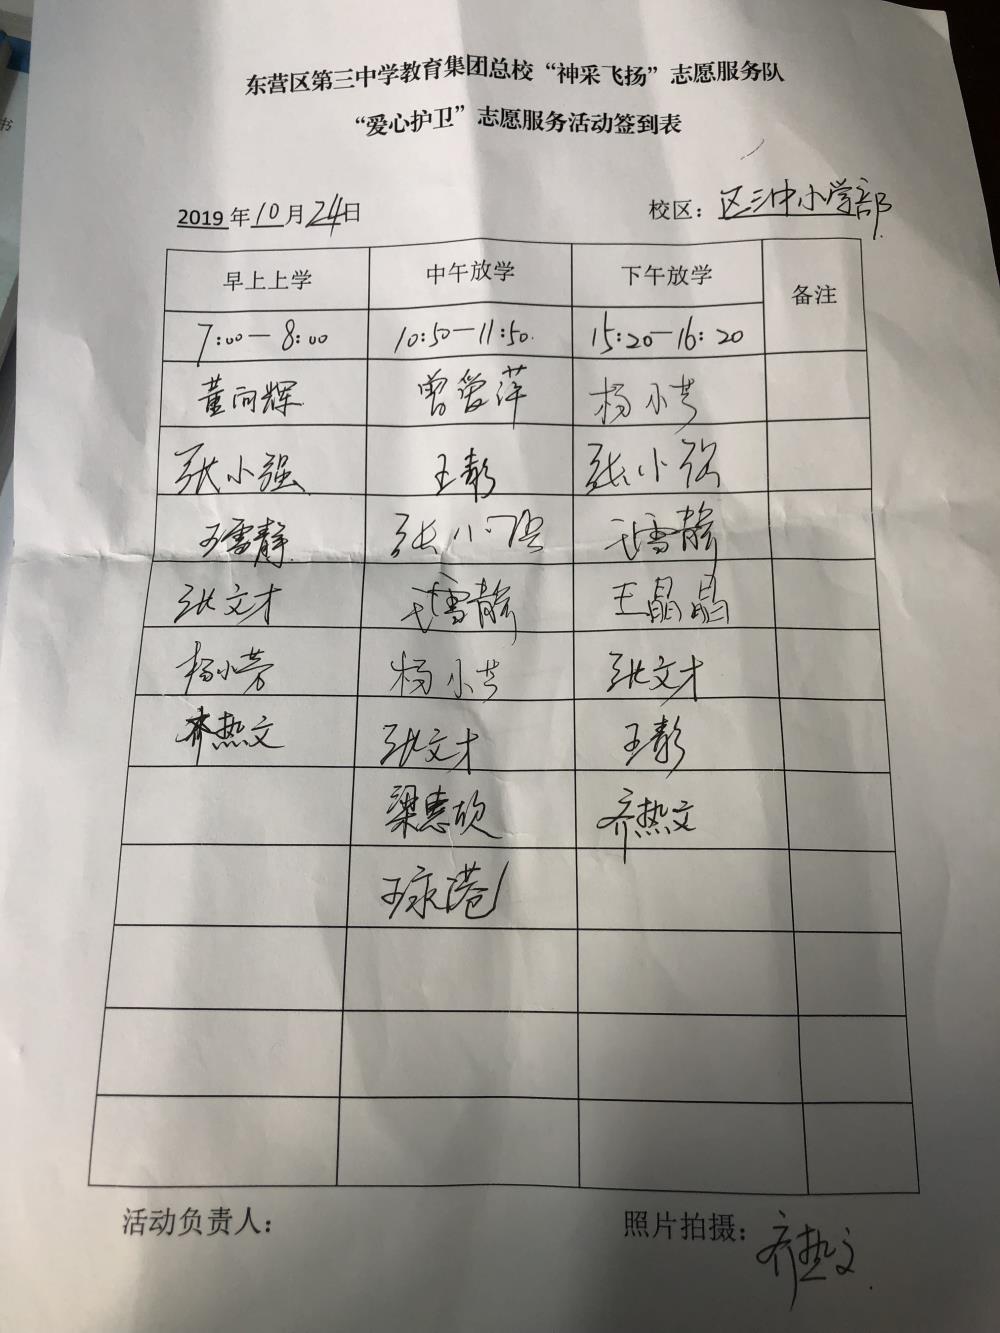 东营区第三中学教育集团总校“神采飞扬”志愿服务队
“爱心护卫”志愿服务活动签到表
2019年10月24日 校区：区三中小学部
早上上学 中午放学 下午放学 备注
7:00—8:00 10:50—11:50. 15:20—16:20
董向辉 曾爱萍 杨小芳
张小强 王彰 张小强
王雪静 张小强 王雪静
张文才 王雪静 王晶晶
杨小芳 杨小芳 张文才
齐热文 张文才 王彰
梁惠欣 齐热文
王永港
活动负责人： 照片拍摄：齐热文.